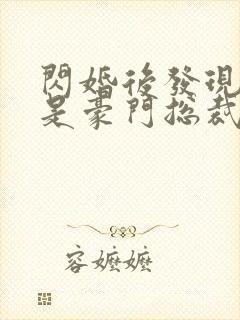 閃婚後發現
是豪門總裁
容嬤嬤